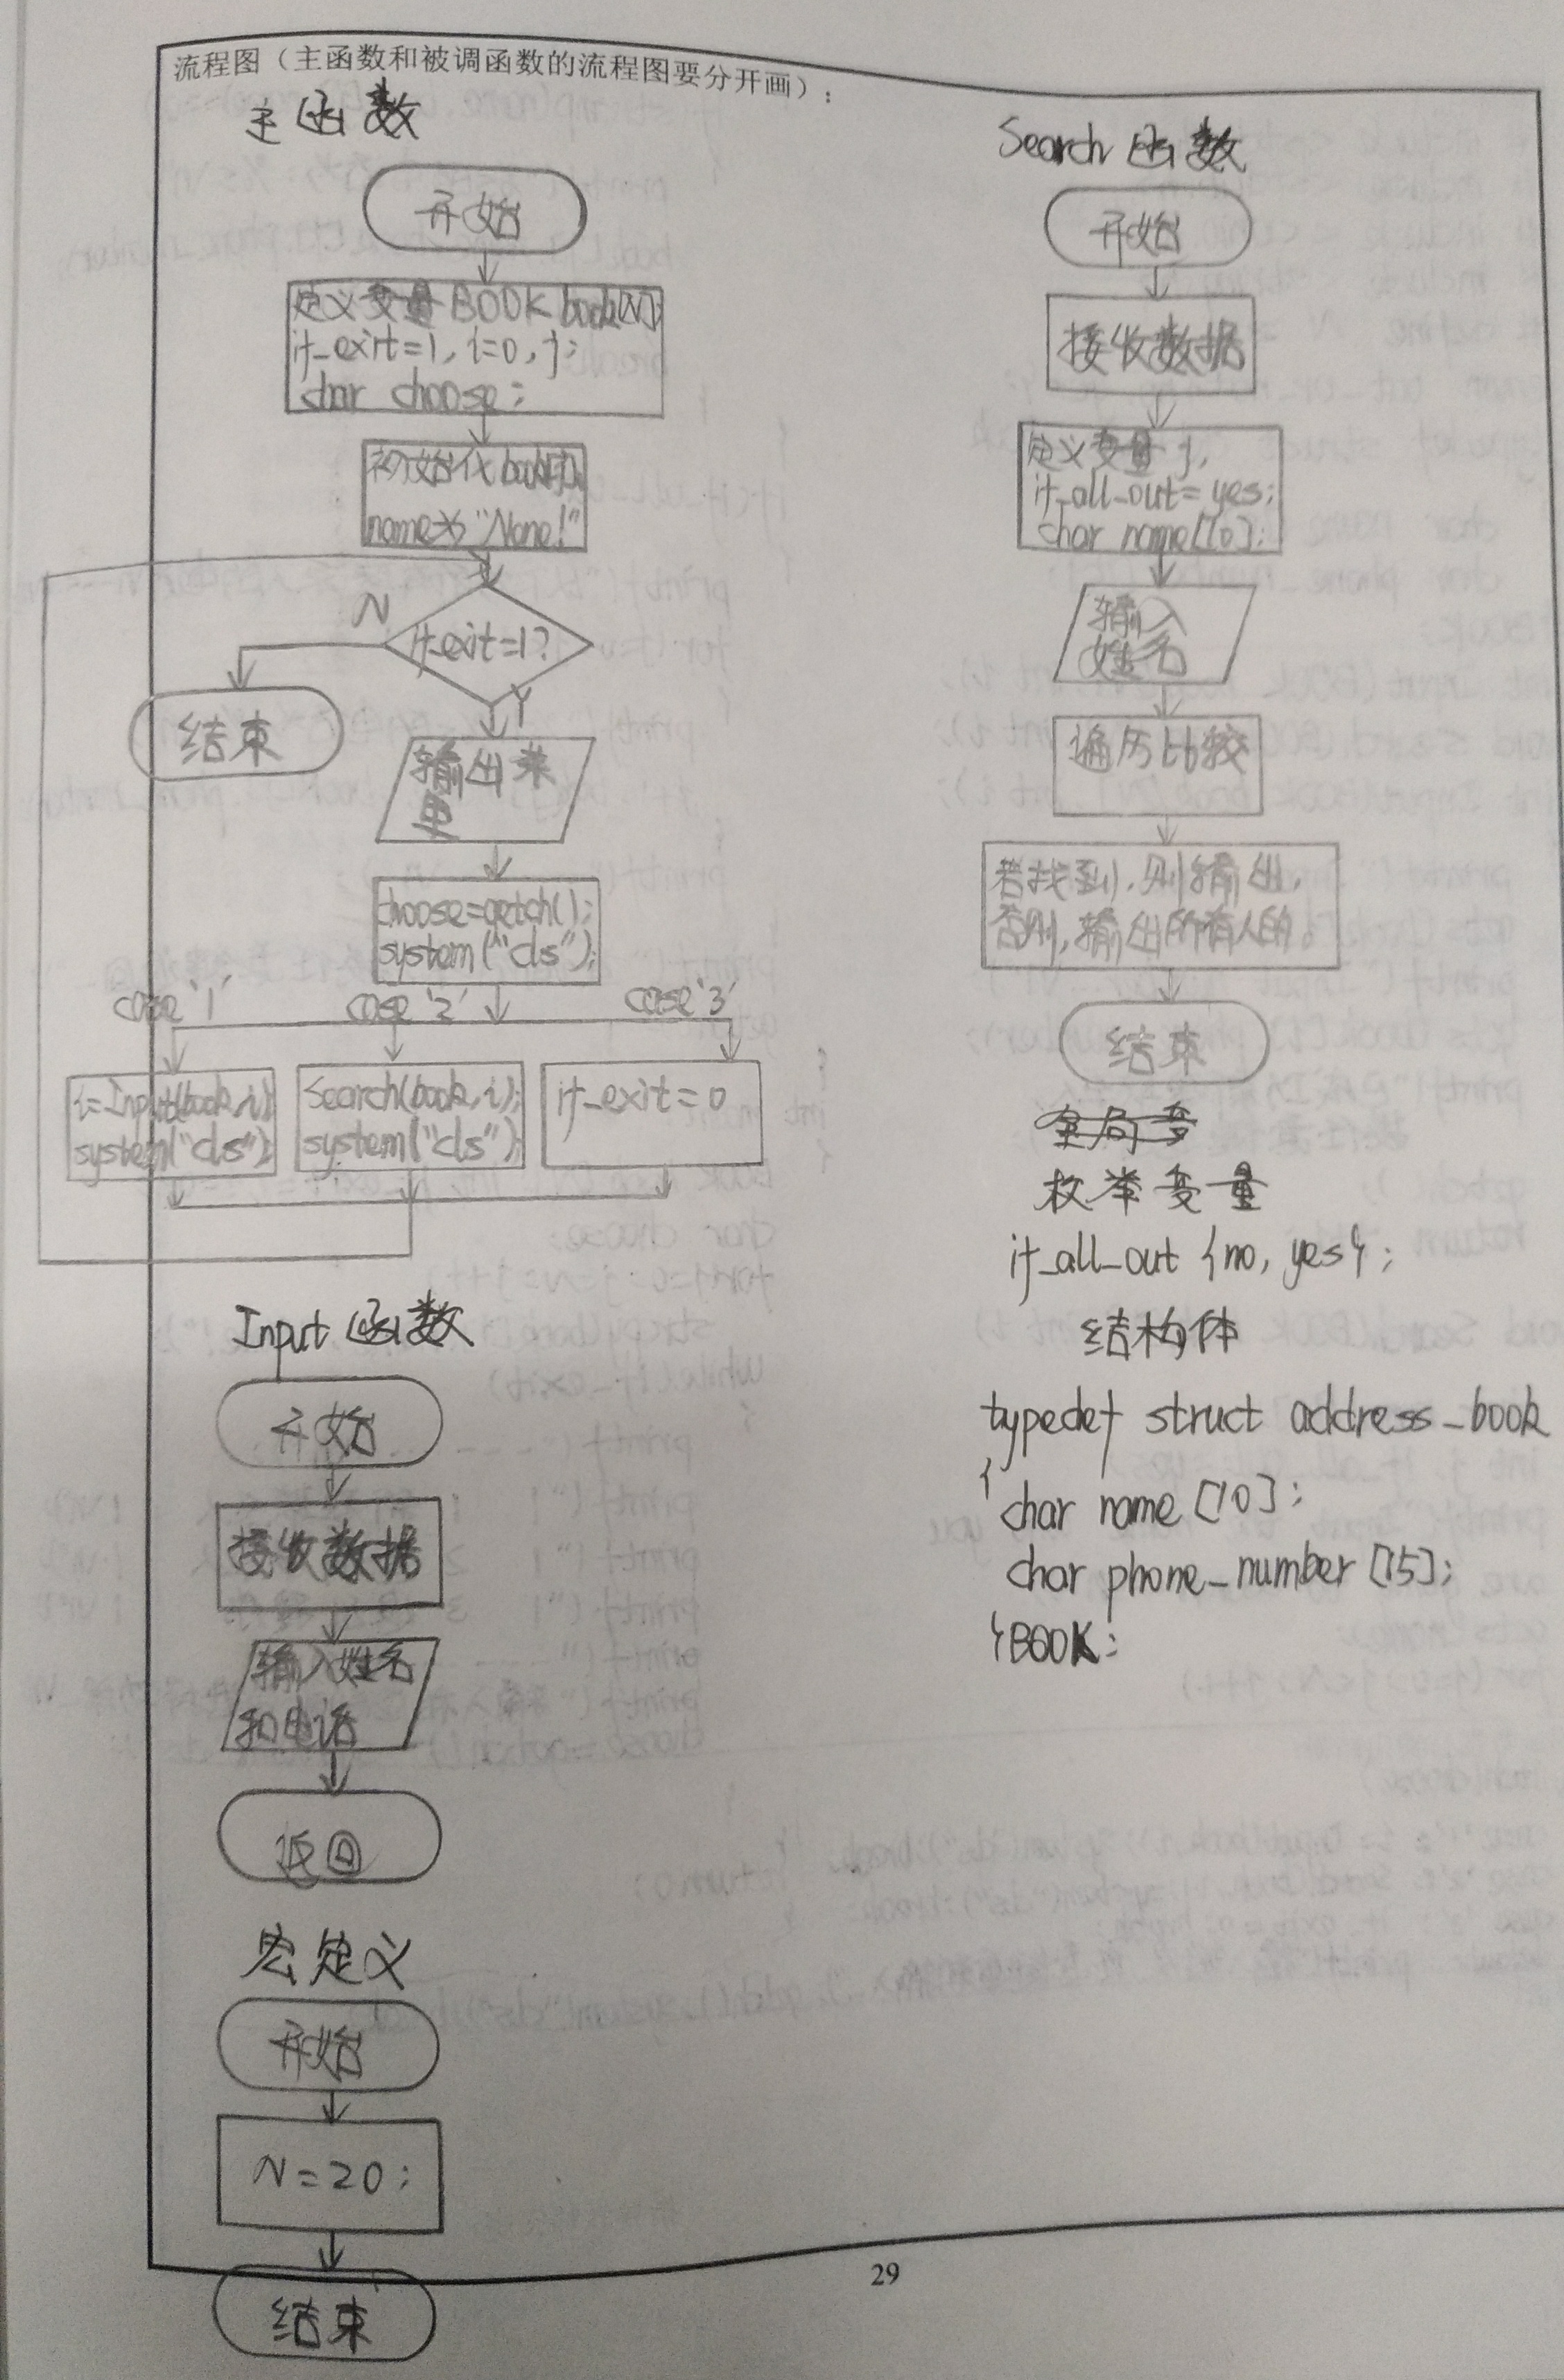 流程图（主函数和被调函数的流程图要分开画）：
主函数
开始
定义变量BOOK book[N];
if_exit=1, i=0, j;
char choose;
初始化book[j].
name为"None!"
if_exit=1?
N
Y
结束
输出菜
单
choose=getch();
system("cls");
case '1'
case '2'
case '3'
i=Input(book,i);
system("cls");
Search(book,i);
system("cls");
if_exit=0
Input函数
开始
接收数据
输入姓名
和电话
返回
宏定义
开始
N=20;
结束
Search函数
开始
接收数据
定义变量 j,
if_all_out=yes;
char name[10];
输入
姓名
遍历比较
若找到,则输出,
否则,输出所有人的。
结束
全局变
枚举变量
if_all_out {no, yes};
结构体
typedef struct address_book
{char name[10];
char phone_number[15];
}BOOK;
29